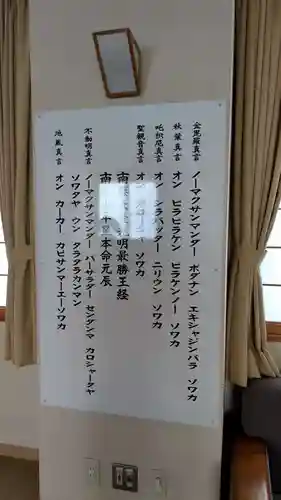 金毘羅真言
ノーマクサンマンダー ボダナン エキシャジンバラ ソワカ
秋葉真言
オン ヒラヒラケン ヒラケンノー ソワカ
吒枳尼真言
オン シラバッター ニリウン ソワカ
聖観音真言
オン ソワカ
南 明最勝王経
南 本命元辰
不動明真言
ノーマクサンマンダー バーサラダー センダンマ カロシャーダヤ
ソワタヤ ウン タラタカンマン
地蔵真言
オン カーカー カビサンマーエーソワカ